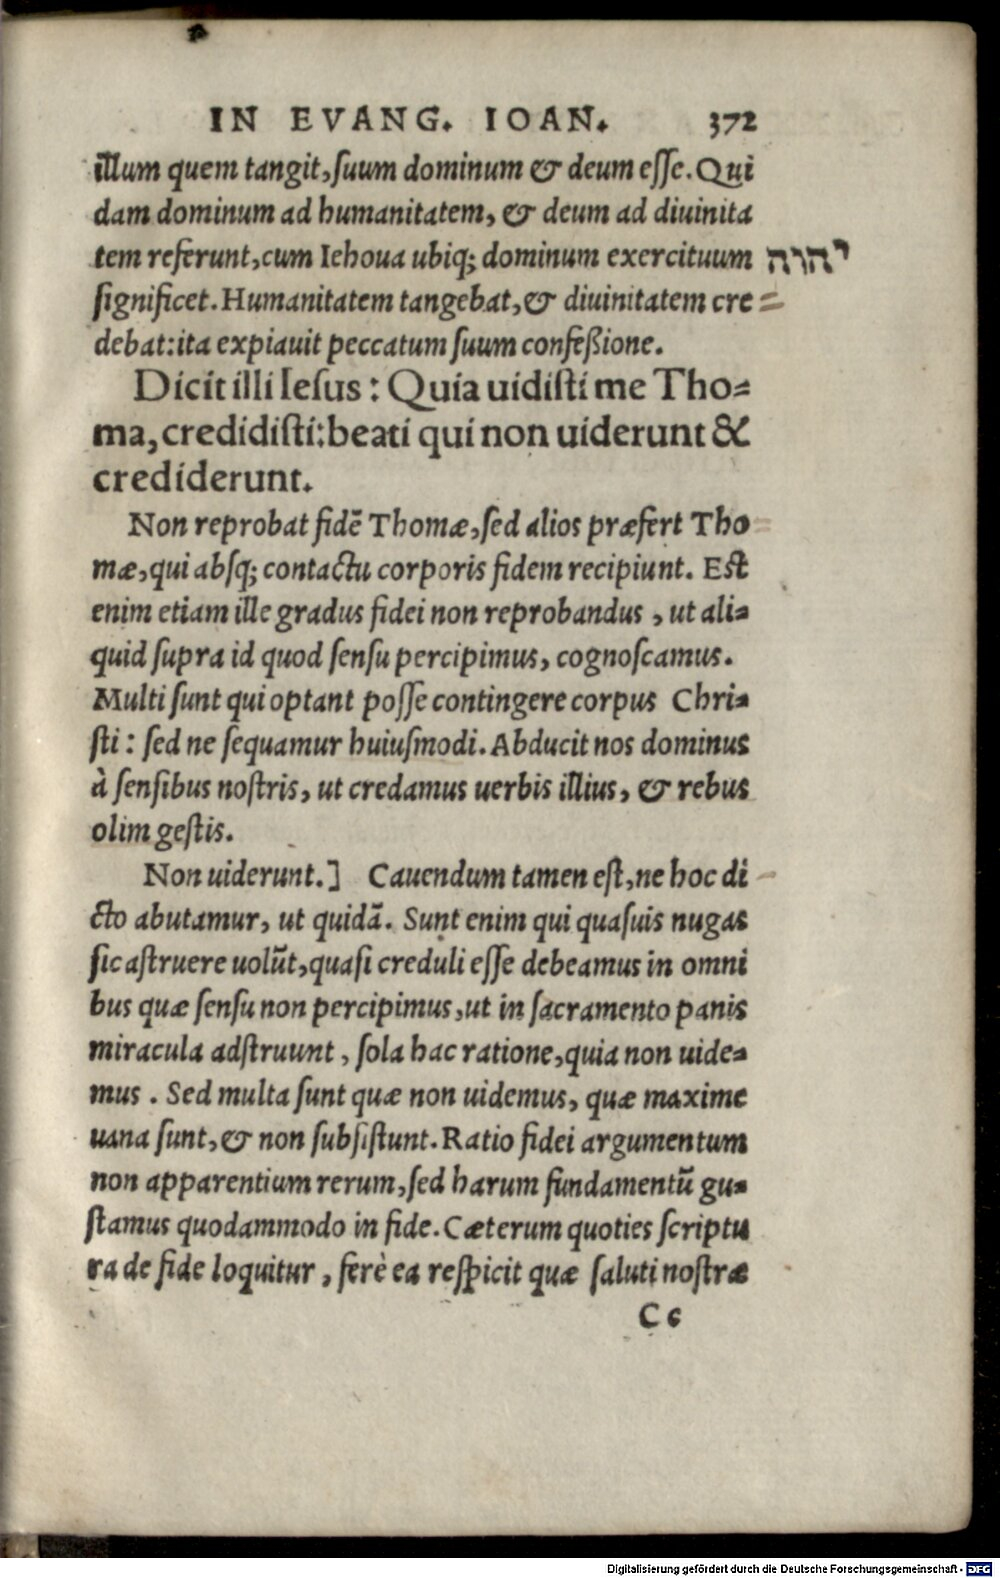 IN EVANG. IOAN. 372
illum quem tangit, suum dominum & deum esse. Qui
dam dominum ad humanitatem, & deum ad diuinita
tem referunt, cum Iehoua ubiq; dominum exercituum יהוה
significet. Humanitatem tangebat, & diuinitatem cre=
debat: ita expiauit peccatum suum confeßione.
Dicit illi Iesus: Quia uidisti me Tho=
ma, credidisti: beati qui non uiderunt &
crediderunt.
Non reprobat fidē Thomæ, sed alios præfert Tho=
mæ, qui absq; contactu corporis fidem recipiunt. Est
enim etiam ille gradus fidei non reprobandus, ut ali=
quid supra id quod sensu percipimus, cognoscamus.
Multi sunt qui optant posse contingere corpus Chri=
sti: sed ne sequamur huiusmodi. Abducit nos dominus
à sensibus nostris, ut credamus uerbis illius, & rebus
olim gestis.
Non uiderunt.] Cauendum tamen est, ne hoc di-
cto abutamur, ut quidā. Sunt enim qui quasuis nugas
sic astruere uolūt, quasi creduli esse debeamus in omni
bus quæ sensu non percipimus, ut in sacramento panis
miracula adstruunt, sola hac ratione, quia non uide=
mus. Sed multa sunt quæ non uidemus, quæ maxime
uana sunt, & non subsistunt. Ratio fidei argumentum
non apparentium rerum, sed harum fundamentū gu=
stamus quodammodo in fide. Cæterum quoties scriptu
ra de fide loquitur, ferè ea respicit quæ saluti nostræ
Cc
Digitalisierung gefördert durch die Deutsche Forschungsgemeinschaft - DFG